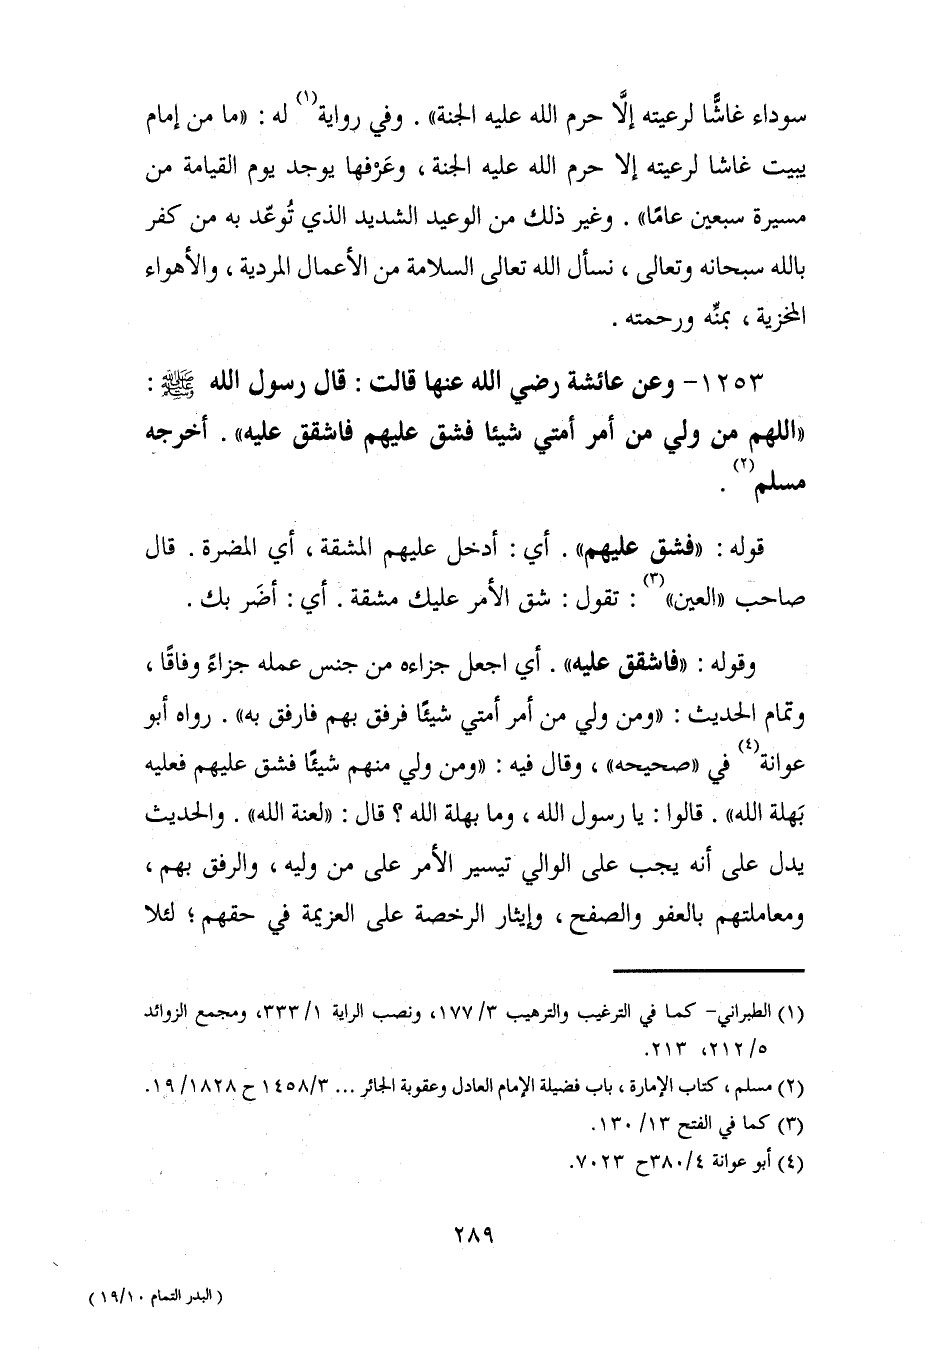 سوداء غاشًّا لرعيته إلَّا حرم الله عليه الجنة» . وفي رواية(١) له : «ما من إمام
يبيت غاشا لرعيته إلا حرم الله عليه الجنة ، وعَرْفها يوجد يوم القيامة من
مسيرة سبعين عامًا» . وغير ذلك من الوعيد الشديد الذي تُوعّد به من كفر
بالله سبحانه وتعالى ، نسأل الله تعالى السلامة من الأعمال المردية ، والأهواء
المخزية ، بمنِّه ورحمته .
١٢٥٣- وعن عائشة رضي الله عنها قالت : قال رسول الله ﷺ :
«اللهم من ولي من أمر أمتي شيئا فشق عليهم فاشقق عليه» . أخرجه
مسلم(٢) .
قوله : «فشق عليهم» . أي : أدخل عليهم المشقة ، أي المضرة . قال
صاحب «العين»(٣) : تقول : شق الأمر عليك مشقة . أي : أضَر بك .
وقوله : «فاشقق عليه» . أي اجعل جزاءه من جنس عمله جزاءً وفاقًا ،
وتمام الحديث : «ومن ولي من أمر أمتي شيئًا فرفق بهم فارفق به» . رواه أبو
عوانة(٤) في «صحيحه» ، وقال فيه : «ومن ولي منهم شيئًا فشق عليهم فعليه
بَهلة الله» . قالوا : يا رسول الله ، وما بهلة الله ؟ قال : «لعنة الله» . والحديث
يدل على أنه يجب على الوالي تيسير الأمر على من وليه ، والرفق بهم ،
ومعاملتهم بالعفو والصفح ، وإيثار الرخصة على العزيمة في حقهم ؛ لئلا
(١) الطبراني- كما في الترغيب والترهيب ٣/ ١٧٧، ونصب الراية ١/ ٣٣٣، ومجمع الزوائد
٥/ ٢١٢، ٢١٣.
(٢) مسلم ، كتاب الإمارة ، باب فضيلة الإمام العادل وعقوبة الجائر ... ٣/ ١٤٥٨ ح ١٨٢٨/ ١٩.
(٣) كما في الفتح ١٣/ ١٣٠.
(٤) أبو عوانة ٤/ ٣٨٠ح ٧٠٢٣.
٢٨٩
( البدر التمام ١٩/١٠ )